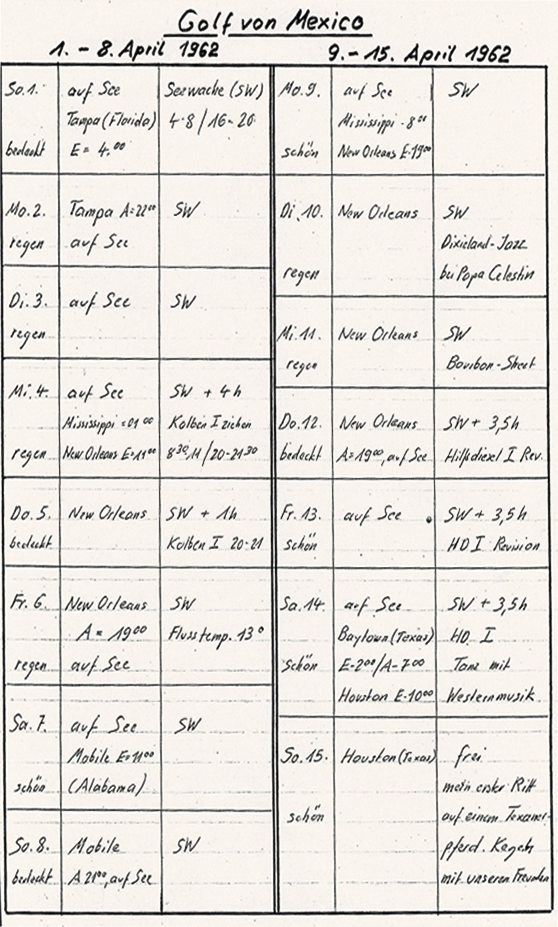 Golf von Mexico
1. - 8. April 1962
So.1. auf See Seewache (SW)
Tampa (Florida) 4-8 / 16-20
bedeckt E = 4.00
Mo.2. Tampa A=22°° SW
regen auf See
Di.3. auf See SW
regen
Mi.4. auf See SW + 4h
Mississippi =01 00 Kolben I ziehen
regen New Orleans E=11°° 8 30, 11 / 20-21 30
Do.5. New Orleans SW + 1h
bedeckt Kolben I 20-21
Fr.6. New Orleans SW
A = 19 00 Flusstemp. 13°
regen auf See
Sa.7. auf See SW
Mobile E=11 00
schön (Alabama)
So.8. Mobile SW
bedeckt A 21 00, auf See
9. - 15. April 1962
Mo.9. auf See SW
Mississippi - 8 00
schön New Orleans E-19 00
Di.10. New Orleans SW
Dixieland-Jazz
regen bei Papa Celestin
Mi.11. New Orleans SW
regen Bourbon-Street
Do.12 New Orleans SW + 3,5h
bedeckt A=19 00, auf See Hilfsdiesel I Rev.
Fr.13. auf See SW + 3,5h
schön HD I Revision
Sa.14. auf See SW + 3,5h
Baytown (Texas) HD I
schön E-2 00 / A-7 00 Tanz mit
Houston E-10 00 Westernmusik
So.15. Houston (Texas) frei
mein erster Ritt
schön auf einem Texaner-
pferd. Kegeln
mit unseren Freunden